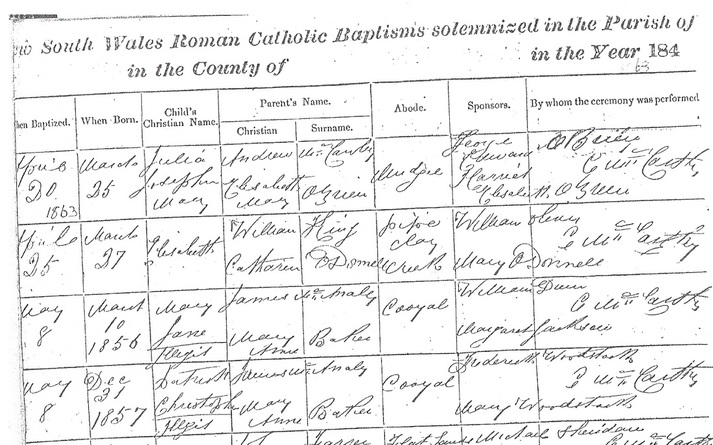 South Wales Roman Catholic Baptisms solemnized in the Parish of
in the County of in the Year 184
63
When Baptized. When Born. Child's Christian Name. Parent's Name. Christian Surname. Abode. Sponsors. By whom the ceremony was performed
March Julia Andrew McCauley George O'Brien
20 25 Josephine Elizabeth O'Brien Mudgee Edward C McCarthy
1863 Mary Mary Harriet
Elizabeth O'Brien
March Elizabeth William King Pipe William Henry
25 27 Clay C McCarthy
Catharen O'Donnell Creek Mary O'Donnell
May March Mary James McAnaly Cooyal William Dunn
8 10 Jane C McCarthy
1856 Illegit Mary Anne Baker Margaret Jackson
May Dec Patrick James McAnaly Cooyal Frederick Woodstock
8 31 Christopher C McCarthy
1857 Illegit Mary Anne Baker Mary Woodstock
Michael Sheridan